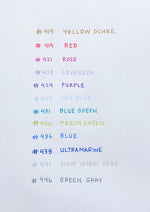 #415 YELLOW OCHRE
#419 RED
#421 ROSE
#423 LAVENDER
#424 PURPLE
SKY BLUE
#431 BLUE GREEN
#432 FRESH GREEN
#436 BLUE
#438 ULTRAMARINE
#441 LIGHT WARM GRAY
#446 GREEN GRAY